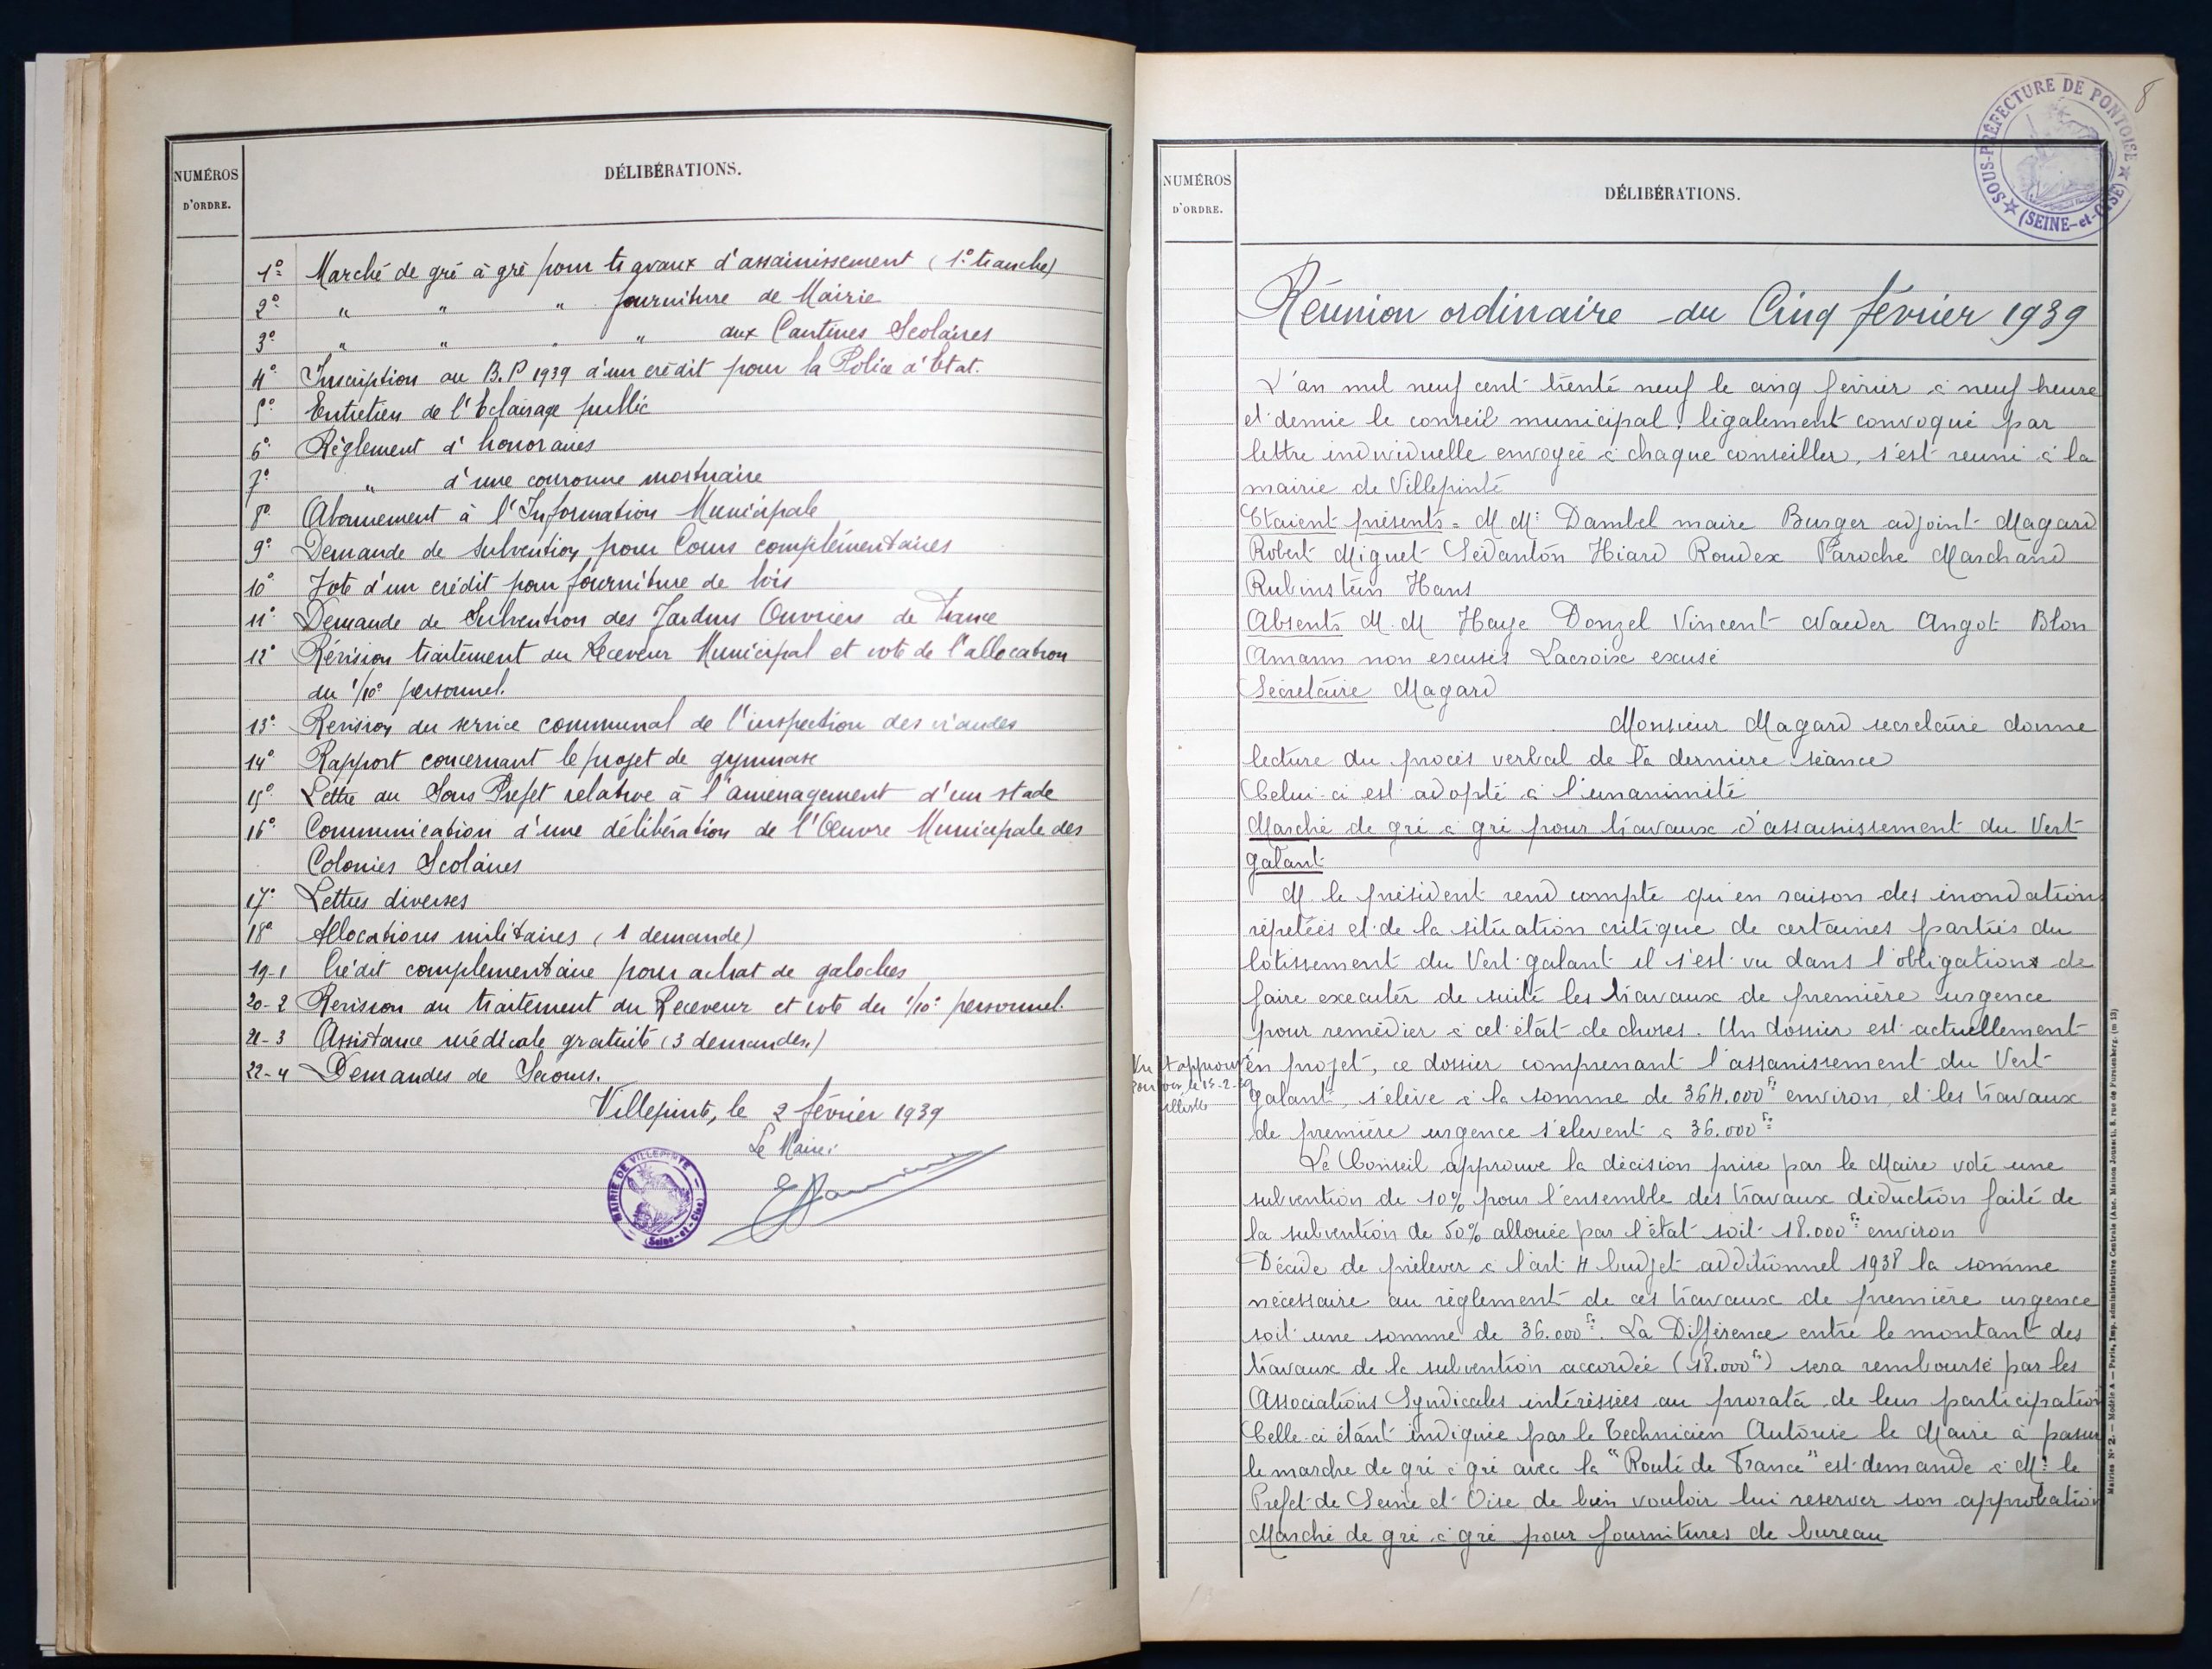 NUMÉROS
D'ORDRE.
DÉLIBÉRATIONS.
1º Marché de gré à gré pour travaux d'assainissement (1º tranche)
2º " " " fourniture de Mairie
3º " " " " aux Cantines Scolaires
4º Inscription au B.P 1939 d'un crédit pour la Police d'Etat.
5º Entretien de l'Eclairage public
6º Règlement d'honoraires
7º " d'une couronne mortuaire
8º Abonnement à l'Information Municipale
9º Demande de Subvention pour Cours complémentaires
10º Vote d'un crédit pour fourniture de bois
11º Demande de Subvention des Jardins Ouvriers de France
12º Révision traitement du Receveur Municipal et vote de l'allocation
du 1/10º personnel.
13º Revision du service communal de l'inspection des viandes
14º Rapport concernant le projet de gymnase
15º Lettre du Sous Préfet relative à l'aménagement d'un stade
16º Communication d'une délibération de l'Œuvre Municipale des
Colonies Scolaires
17º Lettres diverses
18º Allocations militaires (1 demande)
19-1 Crédit complementaire pour achat de galoches
20-2 Revision du traitement du Receveur et vote du 1/10º personnel.
21-3 Assistance médicale gratuite (3 demandes)
22-4 Demandes de Secours.
Villepinte, le 2 février 1939
Le Maire:
MAIRIE DE VILLEPINTE
(Seine-et-Oise)
8
SOUS-PRÉFECTURE DE PONTOISE
(SEINE-et-OISE)
NUMÉROS
D'ORDRE.
DÉLIBÉRATIONS.
Réunion ordinaire du Cinq février 1939
L'an mil neuf cent trente neuf le cinq fevrier à neuf heure
et demie le conseil municipal, légalement convoqué par
lettre individuelle envoyée à chaque conseiller, s'est reuni à la
mairie de Villepinte
Etaient présents = M M: Dambel maire Burger adjoint Magard
Robert Miguet Sedanton Hiard Roudex Paroche Marchand
Rubinstein Hans
Absents M. M Haye Donzel Vincent Naeder Angot Blon
Amann non excusés Lacroix excusé
Secretaire Magard
Monsieur Magard secretaire donne
lecture du procès verbal de la derniere séance
Celui-ci est adopté à l'unanimité
Marché de gré à gré pour travaux d'assainissement du Vert
galant
M. le président rend compte qu'en raison des inondations
répetées et de la situation critique de certaines parties du
lotissement du Vert-galant il s'est vu dans l'obligation de
faire executer de suite les travaux de première urgence
pour remédier à cet état de choses. Un dossier est actuellement
en projet, ce dossier comprenant l'assanissement du Vert
galant, s'élève à la somme de 364.000 fr environ, et les travaux
de premiere urgence s'elevent à 36.000 fr
Vu et approuvé
le 15-2-39
Le Conseil approuve la décision prise par le Maire vote une
subvention de 10% pour l'ensemble des travaux deduction faite de
la subvention de 50% allouée par l'état soit 18.000 fr environ
Décide de prélever à l'art 4 budget additionnel 1938 la somme
nécessaire au règlement de ces travaux de première urgence
soit une somme de 36.000 fr. La Différence entre le montant des
travaux de la subvention accordée (18.000 fr) sera remboursé par les
Associations Syndicales intéressées au prorata de leur participation
Celle-ci étant indiquée par le Technicien Autorise le Maire à passer
le marche de gré à gré avec la "Route de France" est demande à M: le
Prefet de Seine et Oise de bien vouloir lui reserver son approbation
Marché de gré à gré pour fournitures de bureau
Mairies Nº 2. — Modèle A — Paris, Imp. administrative Centrale (Anc. Maison Jousset), 8, rue de Furstenberg. (m 13)